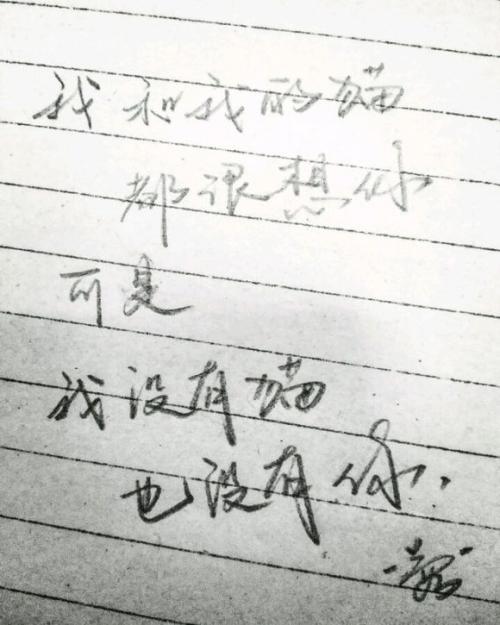 我和我的猫
都很想你
可是
我没有猫
也没有你.